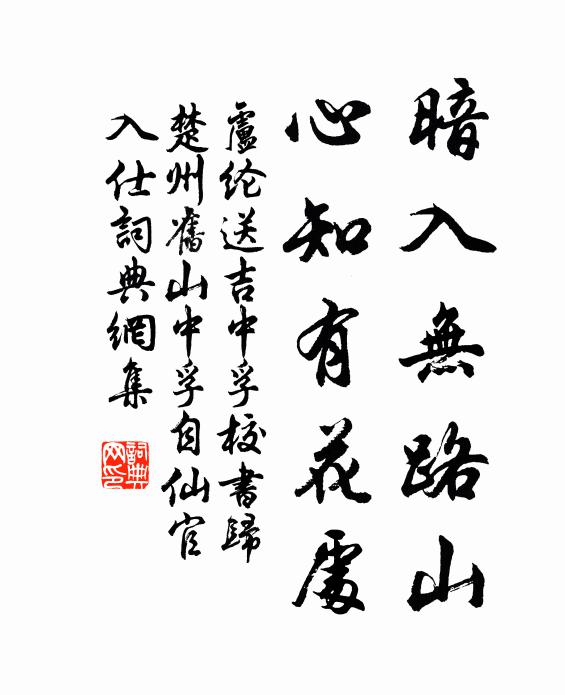 暗入無路山
心知有花處
盧纶送吉中孚校書歸
楚州舊山中孚自仙官
入仕詞典網集
詞典网印